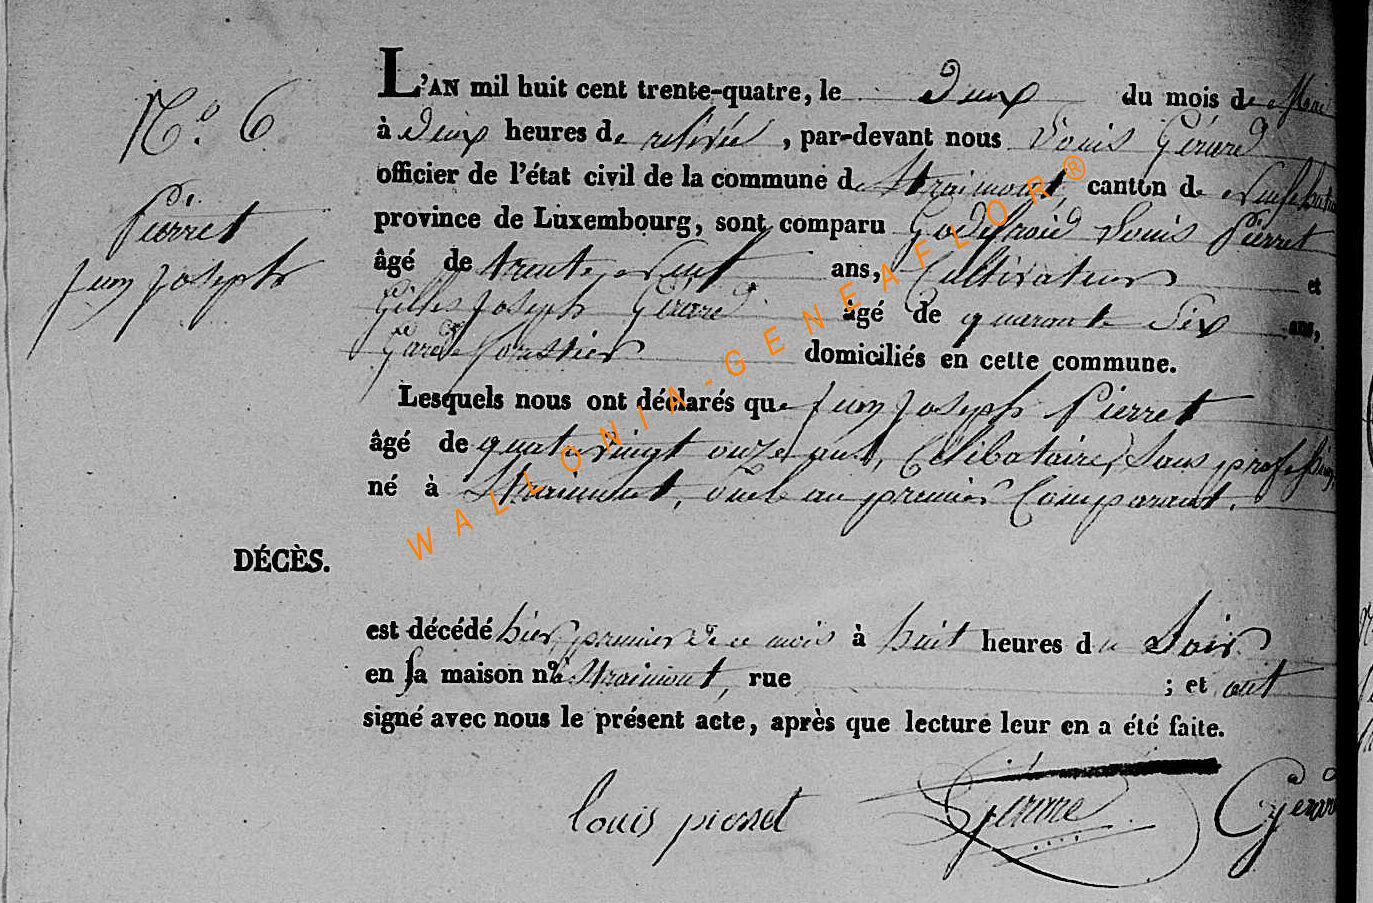 N.o 6
De.
Pierret
Jean Joseph
L'AN mil huit cent trente-quatre, le deux du mois de Mai
à deux heures de relevée, par-devant nous Louis Gérard
officier de l'état civil de la commune de Straimont, canton de
province de Luxembourg, sont comparu Godefroid Louis Pierret
âgé de trente neuf ans, Cultivateur et
Gilles Joseph Gérard âgé de quarante Six ans,
Garde forestier domiciliés en cette commune.
Lesquels nous ont déclarés que Jean Joseph Pierret
âgé de quatrevingt onze ans, Célibataire, Sans profession,
né à Straimont, oncle au premier Comparant.
DÉCÈS.
est décédé hier, premier de ce mois à huit heures du Soir
en sa maison n.o à Straimont, rue ; et ont
signé avec nous le présent acte, après que lecture leur en a été faite.
louis pierret Gérard Gérard
WALLONIA-GENEAFLOR®